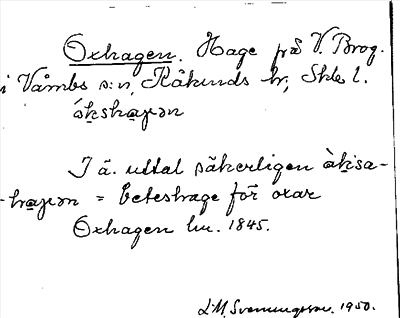 Oxhagen. Hage på V. Brog.
i Våmbs s:n, Kåkinds hd, Skbl.
åkshaγən
I ä. uttal säkerligen àksa-
-haγən = beteshage för oxar
Oxhagen lm. 1845.
L.M. Svenungsson. 1950.